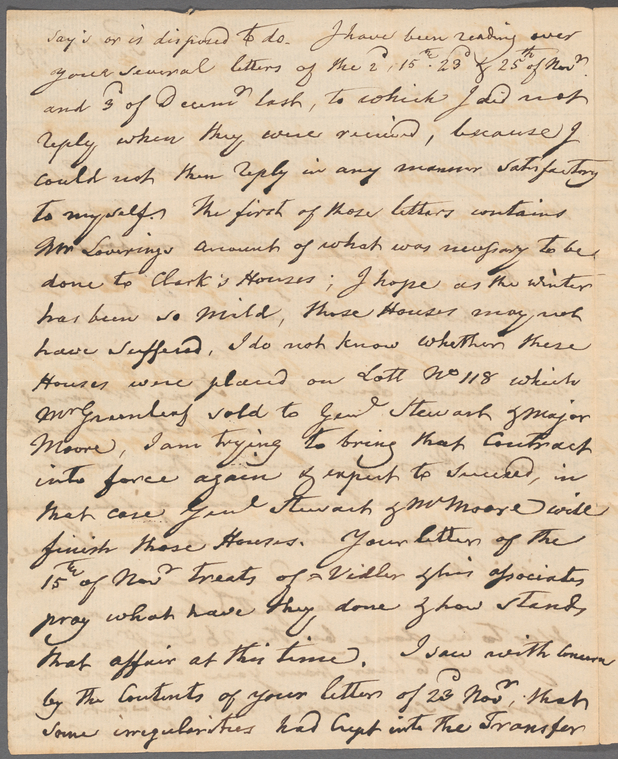 say's or is disposed to do. I have been reading over
your several letters of the 2d, 15th. 23d & 25th of Novr.
and 3d of Decemr last, to which I did not
reply when they were received, because I
could not then reply in any manner satisfactory
to myself. The first of those letters contains
Mr Loverings amount of what was necessary to be
done to Clark's Houses; I hope as the winter
has been so mild, those Houses may not
have suffered, I do not know whether these
Houses were placed on Lott No 118 which
Mr Greenleaf sold to Genl Stewart & Major
Moore, I am trying to bring that Contract
into force again & expect to succeed, in
that case Genl Stewart & Mr Moore will
finish those Houses. Your letters of the
15th of Novr treats of Vidler & his associates
pray what have they done & how stands
that affair at this time. I saw with concern
by the Contents of your letters of 23d Novr, that
some irregularities had Crept into the Transfer